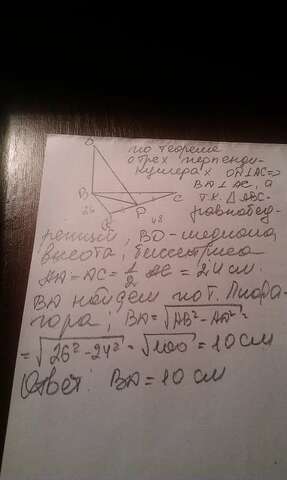 O
по теореме
о трех перпенди-
кулярах OД⊥AC=>
BД⊥AC, а
т.к. △ABC-
равнобед-
B
26
C
48
ренный, BD-медиана,
высота, биссектриса
AД=ДC=1/2 AC=24 см.
BД найдем по т. Пифа-
гора; BД=√AB²-AД²=
=√26²-24²=√100=10 см
Ответ: BД=10 см